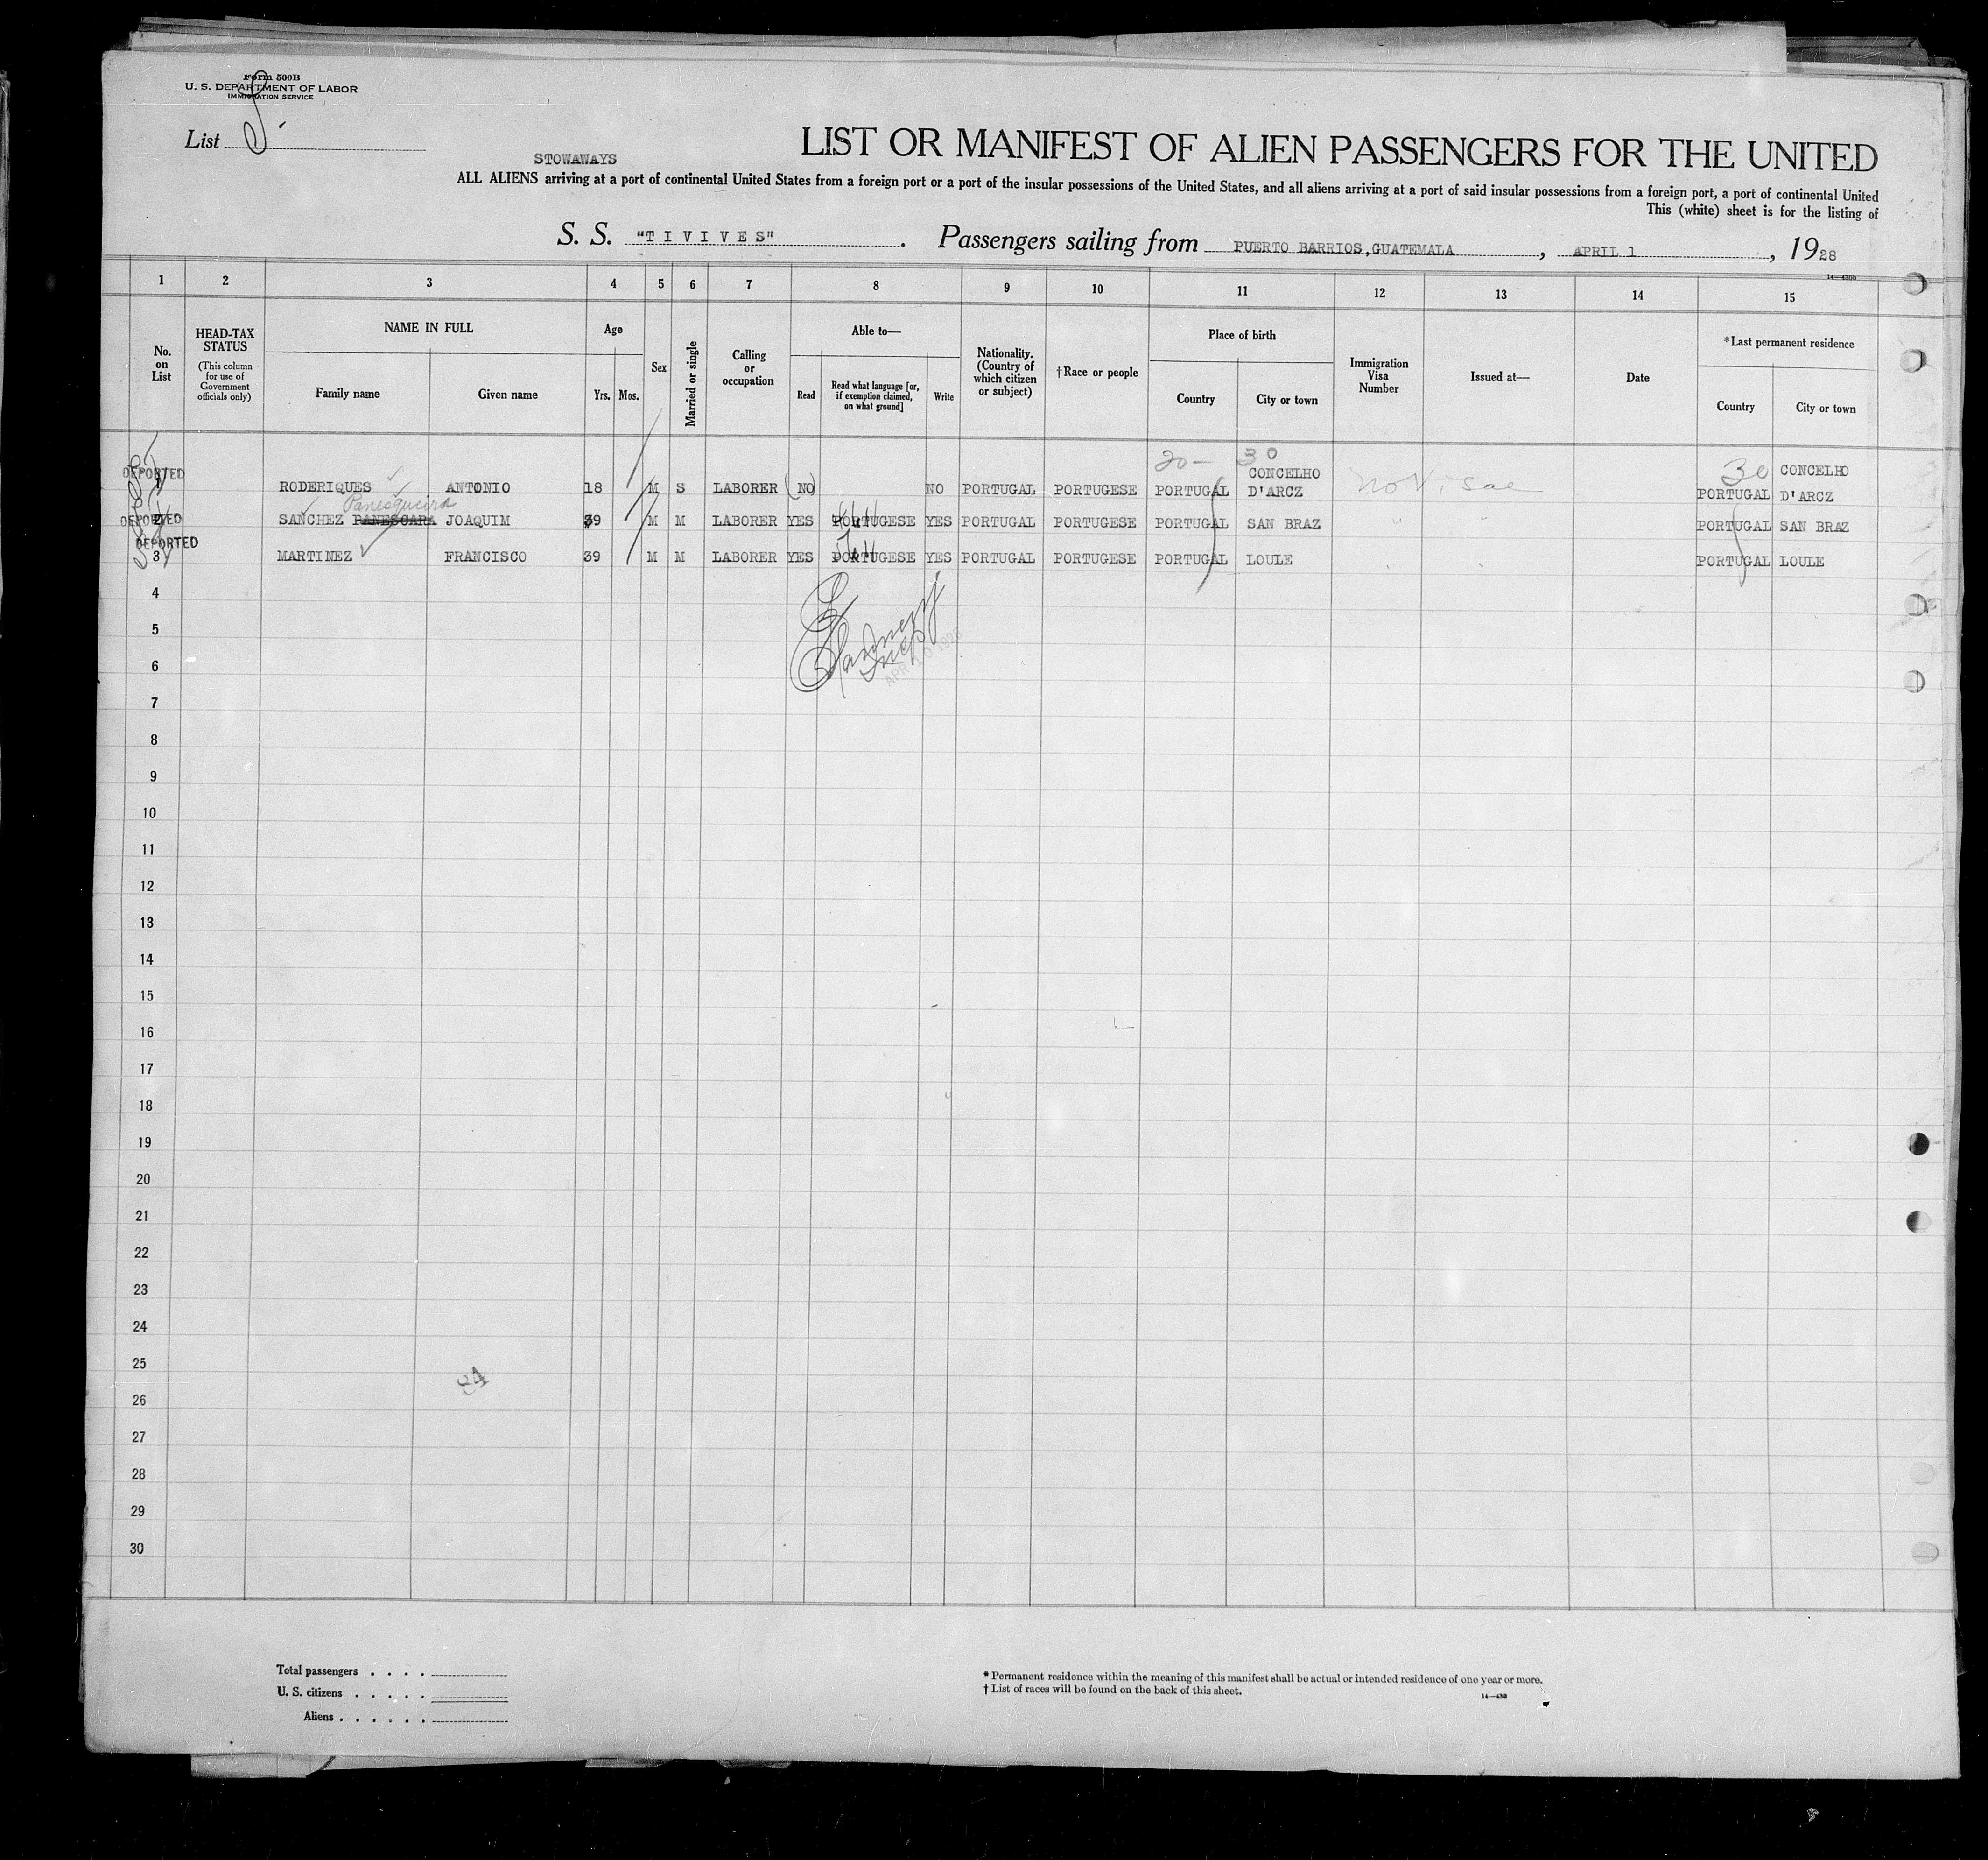 Form 500B
U. S. DEPARTMENT OF LABOR
IMMIGRATION SERVICE
List
STOWAWAYS
LIST OR MANIFEST OF ALIEN PASSENGERS FOR THE UNITED
ALL ALIENS arriving at a port of continental United States from a foreign port or a port of the insular possessions of the United States, and all aliens arriving at a port of said insular possessions from a foreign port, a port of continental United
This (white) sheet is for the listing of
S. S. "T I V I V E S". Passengers sailing from PUERTO BARRIOS, GUATEMALA, APRIL 1, 1928
14—430b
1 2 3 4 5 6 7 8 9 10 11 12 13 14 15
No. on List
HEAD-TAX STATUS
(This column for use of Government officials only)
NAME IN FULL
Family name
Given name
Age
Yrs. Mos.
Sex
Married or single
Calling or occupation
Able to—
Read
Read what language [or, if exemption claimed, on what ground]
Write
Nationality. (Country of which citizen or subject)
†Race or people
Place of birth
Country
City or town
Immigration Visa Number
Issued at—
Date
*Last permanent residence
Country
City or town
20 — 30 30
DEPORTED
1 RODERIQUES ANTONIO 18 M S LABORER NO NO PORTUGAL PORTUGESE PORTUGAL CONCELHO D'ARCZ no Visae PORTUGAL CONCELHO D'ARCZ
Panesqueira
DEPORTED
2 SANCHEZ PANESCARA JOAQUIM 39 M M LABORER YES PORTUGESE YES PORTUGAL PORTUGESE PORTUGAL SAN BRAZ " " PORTUGAL SAN BRAZ
DEPORTED
3 MARTINEZ FRANCISCO 39 M M LABORER YES PORTUGESE YES PORTUGAL PORTUGESE PORTUGAL LOULE PORTUGAL LOULE
4
5
6
7
8
9
10
11
12
13
14
15
16
17
18
19
20
21
22
23
24
25
84
26
27
28
29
30
Total passengers . . . .
U. S. citizens . . . . .
Aliens . . . . . .
* Permanent residence within the meaning of this manifest shall be actual or intended residence of one year or more.
† List of races will be found on the back of this sheet.
14—430